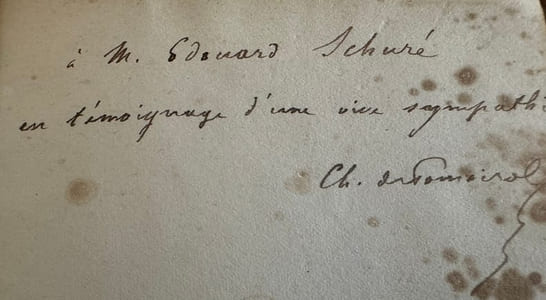 à M. Edouard Schuré
en témoignage d'une vive sympathie
Ch. de Pomairol